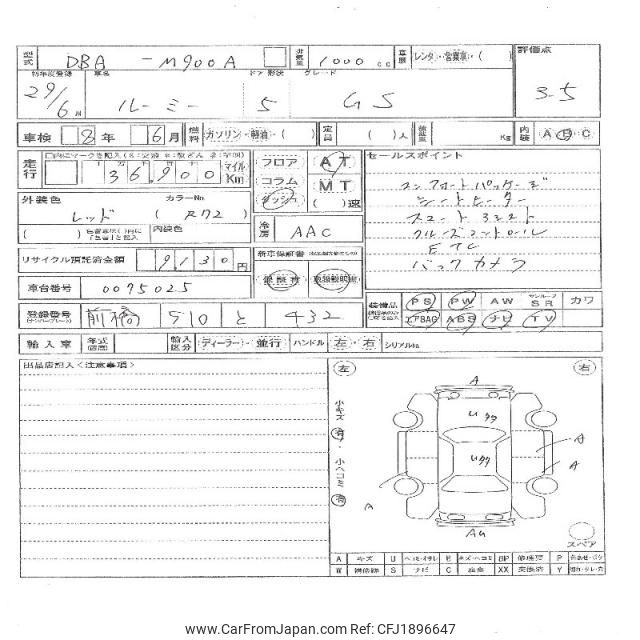 型式 DBA -M900A 排気量 1000 cc 車歴 レンタ・営業車・( ) 評価点
初年度登録 車名 ドア形状 グレード
29/6月 ルーミー 5 GS 3.5
車検 8年 6月 燃料 ガソリン・軽油・( ) 定員 ( )人 積載量 Kg 内装 A B C
走行 36,900 マイル Km フロア AT セールスポイント
コラム MT
ダッシュ ( )速
コンフォートパッケージ
シートヒーター
スマートアシスト
クルーズコントロール
ETC
バックカメラ
外装色 カラーNo
レッド ( R72 )
内装色 冷房 AAC
リサイクル預託済金額 9130円 新車保証書
保証書 取扱説明書
車台番号 0095025
登録番号 (ナンバープレート) 前橋 510 と 432
装備品 PS PW AW サンルーフ SR カワ
AIRBAG ABS ナビ TV
輸入車 年式 輸入区分 ディーラー・並行 ハンドル 左・右 シリアルNo
出品店記入<注意事項>
左 右
小キズ 有・小ヘコミ 有
A
A
A
A
スペア
A キズ U ヘコミ
W S サビ C 腐食 XX 交換済 Y
© CarFromJapan.com - CFJ1896647